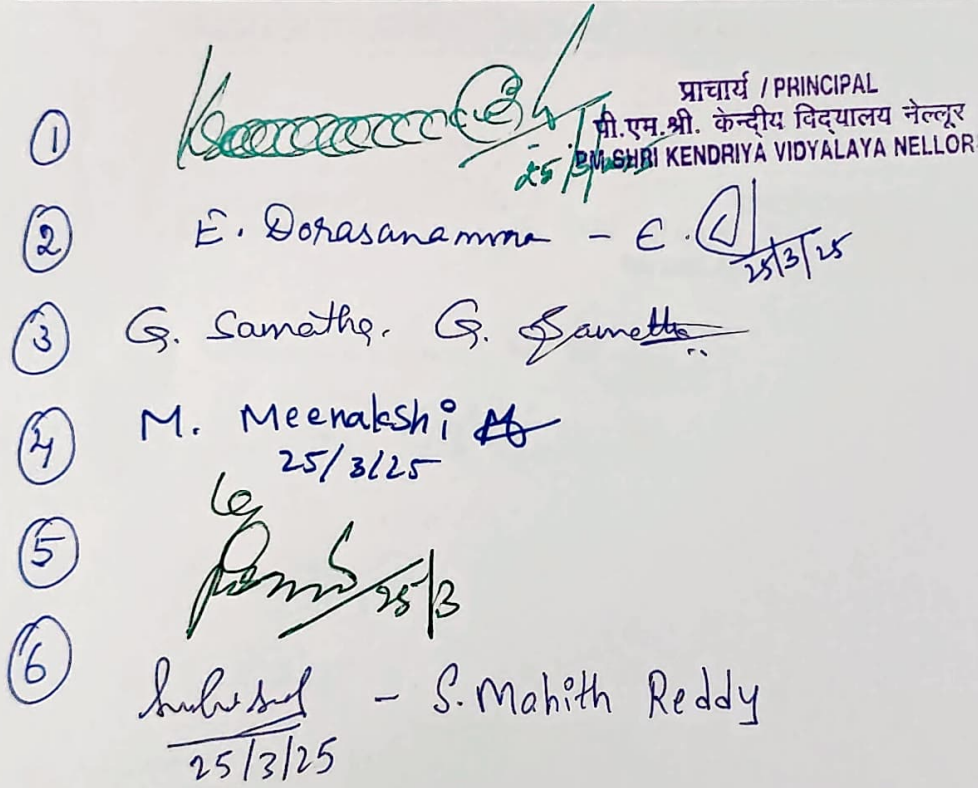 ① प्राचार्य / PRINCIPAL
पी.एम.श्री. केन्द्रीय विद्यालय नेल्लूर
PM SHRI KENDRIYA VIDYALAYA NELLOR
25/3/
② E. Dorasanamma - E.
25/3/25
③ G. Samatha. G. Samatha
④ M. Meenakshi
25/3/25
⑤
25/3
⑥ - S. Mahith Reddy
25/3/25